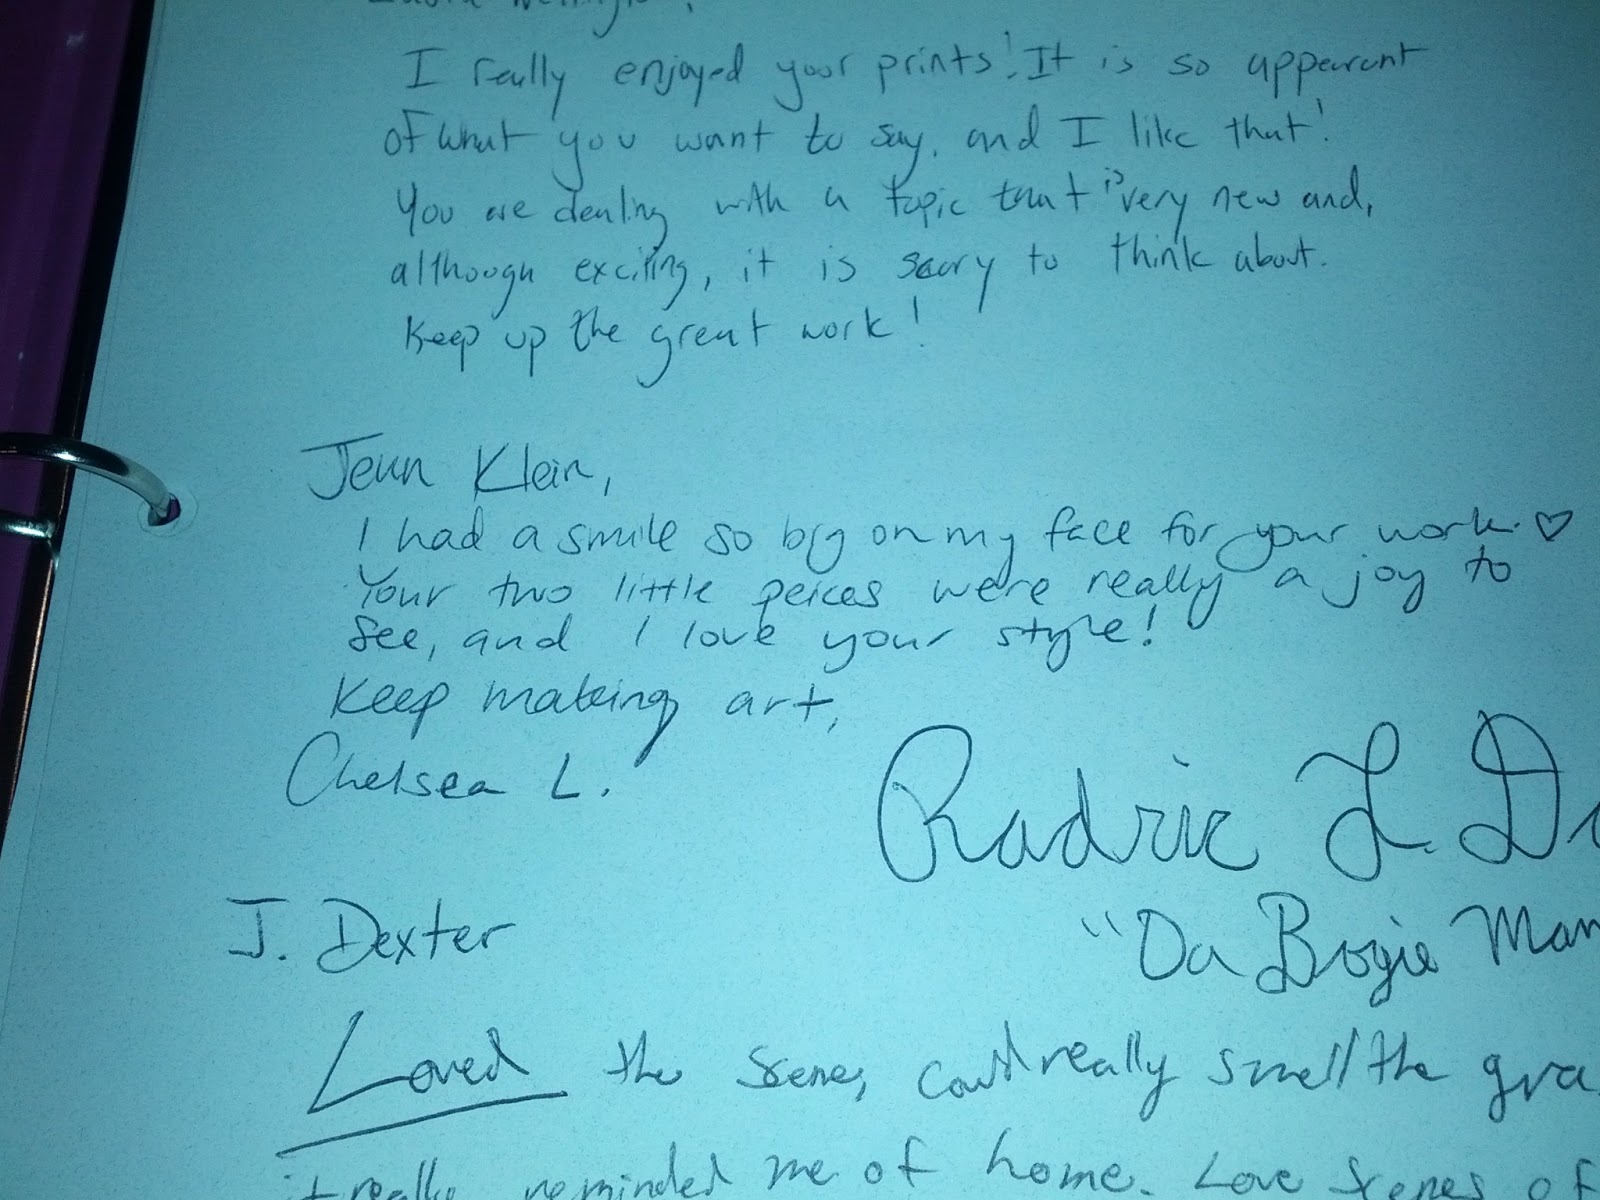 I really enjoyed your prints! It is so appearant
of what you want to say, and I like that!
You are dealing with a topic that is very new and,
although exciting, it is scary to think about.
Keep up the great work!
Jenn Klein,
I had a smile so big on my face for your work. ♡
Your two little peices were really a joy to
see, and I love your style!
Keep making art,
Chelsea L.
Radric L. D
"Da Bogie Man
J. Dexter
Loved the scene, could really smell the gra
it really reminded me of home. Love scenes of